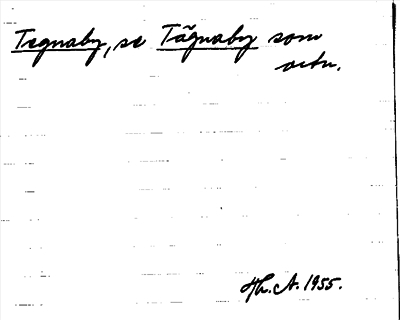 Tegnaby, se Tägnaby som
ortn.
Hh. A. 1955.